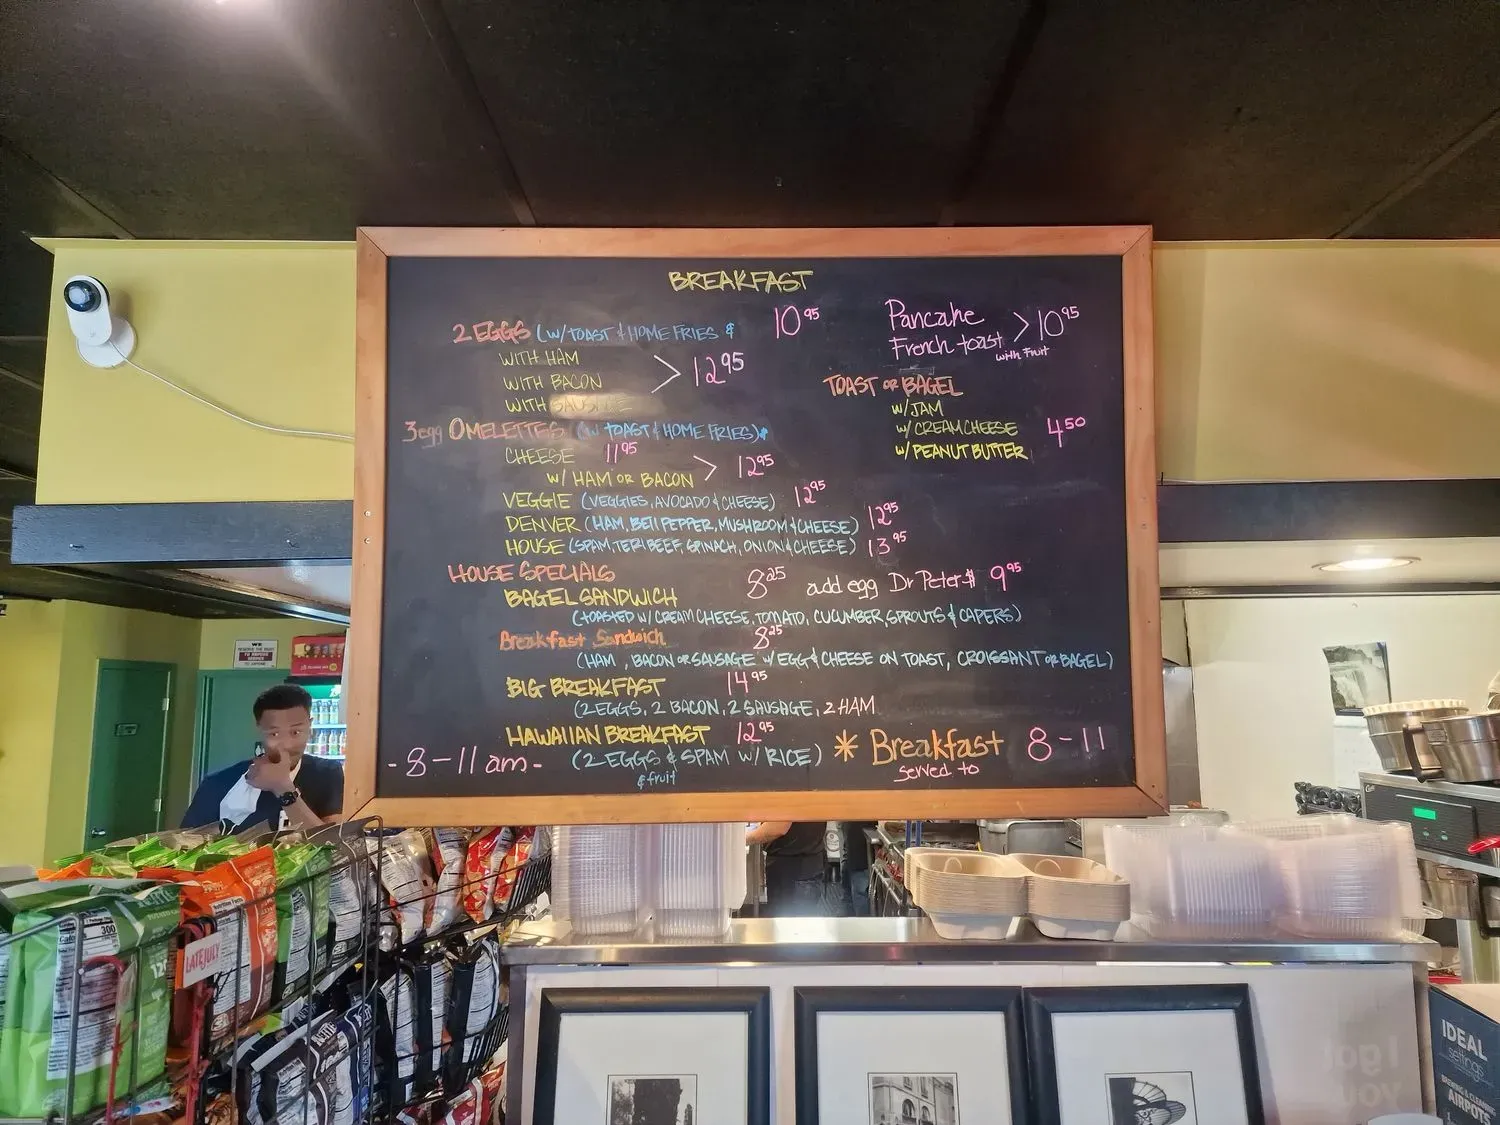 BREAKFAST
2 EGGS (W/TOAST & HOME FRIES & 10 95
WITH HAM
WITH BACON > 12 95
WITH SAUSAGE
3 egg OMELETTES (W/ TOAST & HOME FRIES)&
CHEESE 11 95
W/ HAM OR BACON > 12 95
VEGGIE (VEGGIES, AVOCADO & CHEESE) 12 95
DENVER (HAM, BELL PEPPER, MUSHROOM & CHEESE) 12 95
HOUSE (SPAM, TERI BEEF, SPINACH, ONION & CHEESE) 13 95
HOUSE SPECIALS
BAGEL SANDWICH 8 25 add egg Dr Peter $ 9 95
(TOASTED W/ CREAM CHEESE, TOMATO, CUCUMBER, SPROUTS & CAPERS)
Breakfast Sandwich 8 25
(HAM, BACON OR SAUSAGE W/ EGG & CHEESE ON TOAST, CROISSANT OR BAGEL)
BIG BREAKFAST 14 95
(2 EGGS, 2 BACON, 2 SAUSAGE, 2 HAM
HAWAIIAN BREAKFAST 12 95
(2 EGGS & SPAM W/ RICE)
& fruit
- 8-11 am -
Pancake
French toast > 10 95
with Fruit
TOAST OR BAGEL
W/ JAM
W/ CREAM CHEESE 4 50
W/ PEANUT BUTTER
* Breakfast 8-11
served to
WE
RESERVE THE RIGHT
TO REFUSE
SERVICE
TO ANYONE
LATE JULY
300
IDEAL
settings
BREWING & CLEANING
AIRPOTS
I got
you